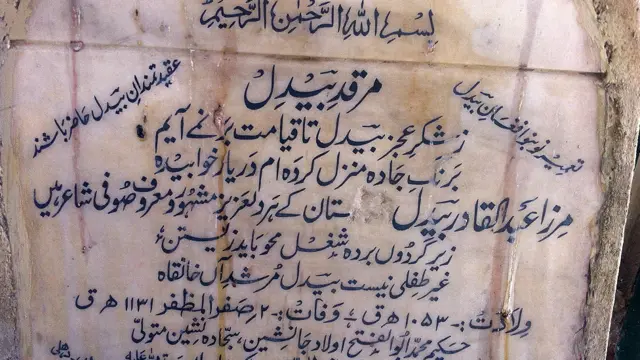 بِسْمِ اللهِ الرَّحْمٰنِ الرَّحِيْمِ
مرقدِ بیدلؒ
عقیدتمندانِ بیدل حاضر باشند
زشکرِ عجز بیدل تا قیامت برنے آیم
برنگِ جادہ منزل کردہ ام در یار خوابیدہ
مرزا عبدالقادر بیدلؒ ستان کے ہر دلعزیز مشہور و معروف صوفی شاعر ہیں
زیرِ گردوں بردہ شغل محو باید زیستن
غیر طفلی نیست بیدل مرشد آں خانقاہ
ولادت :۔ ۱۰۵۳ ھ ق ؛ وفات :۔ ۲ صفر المظفر ۱۱۳۱ ھ ق
حکیم محمد ابوالفتح اولاد جانشین، سجادہ نشین متولی